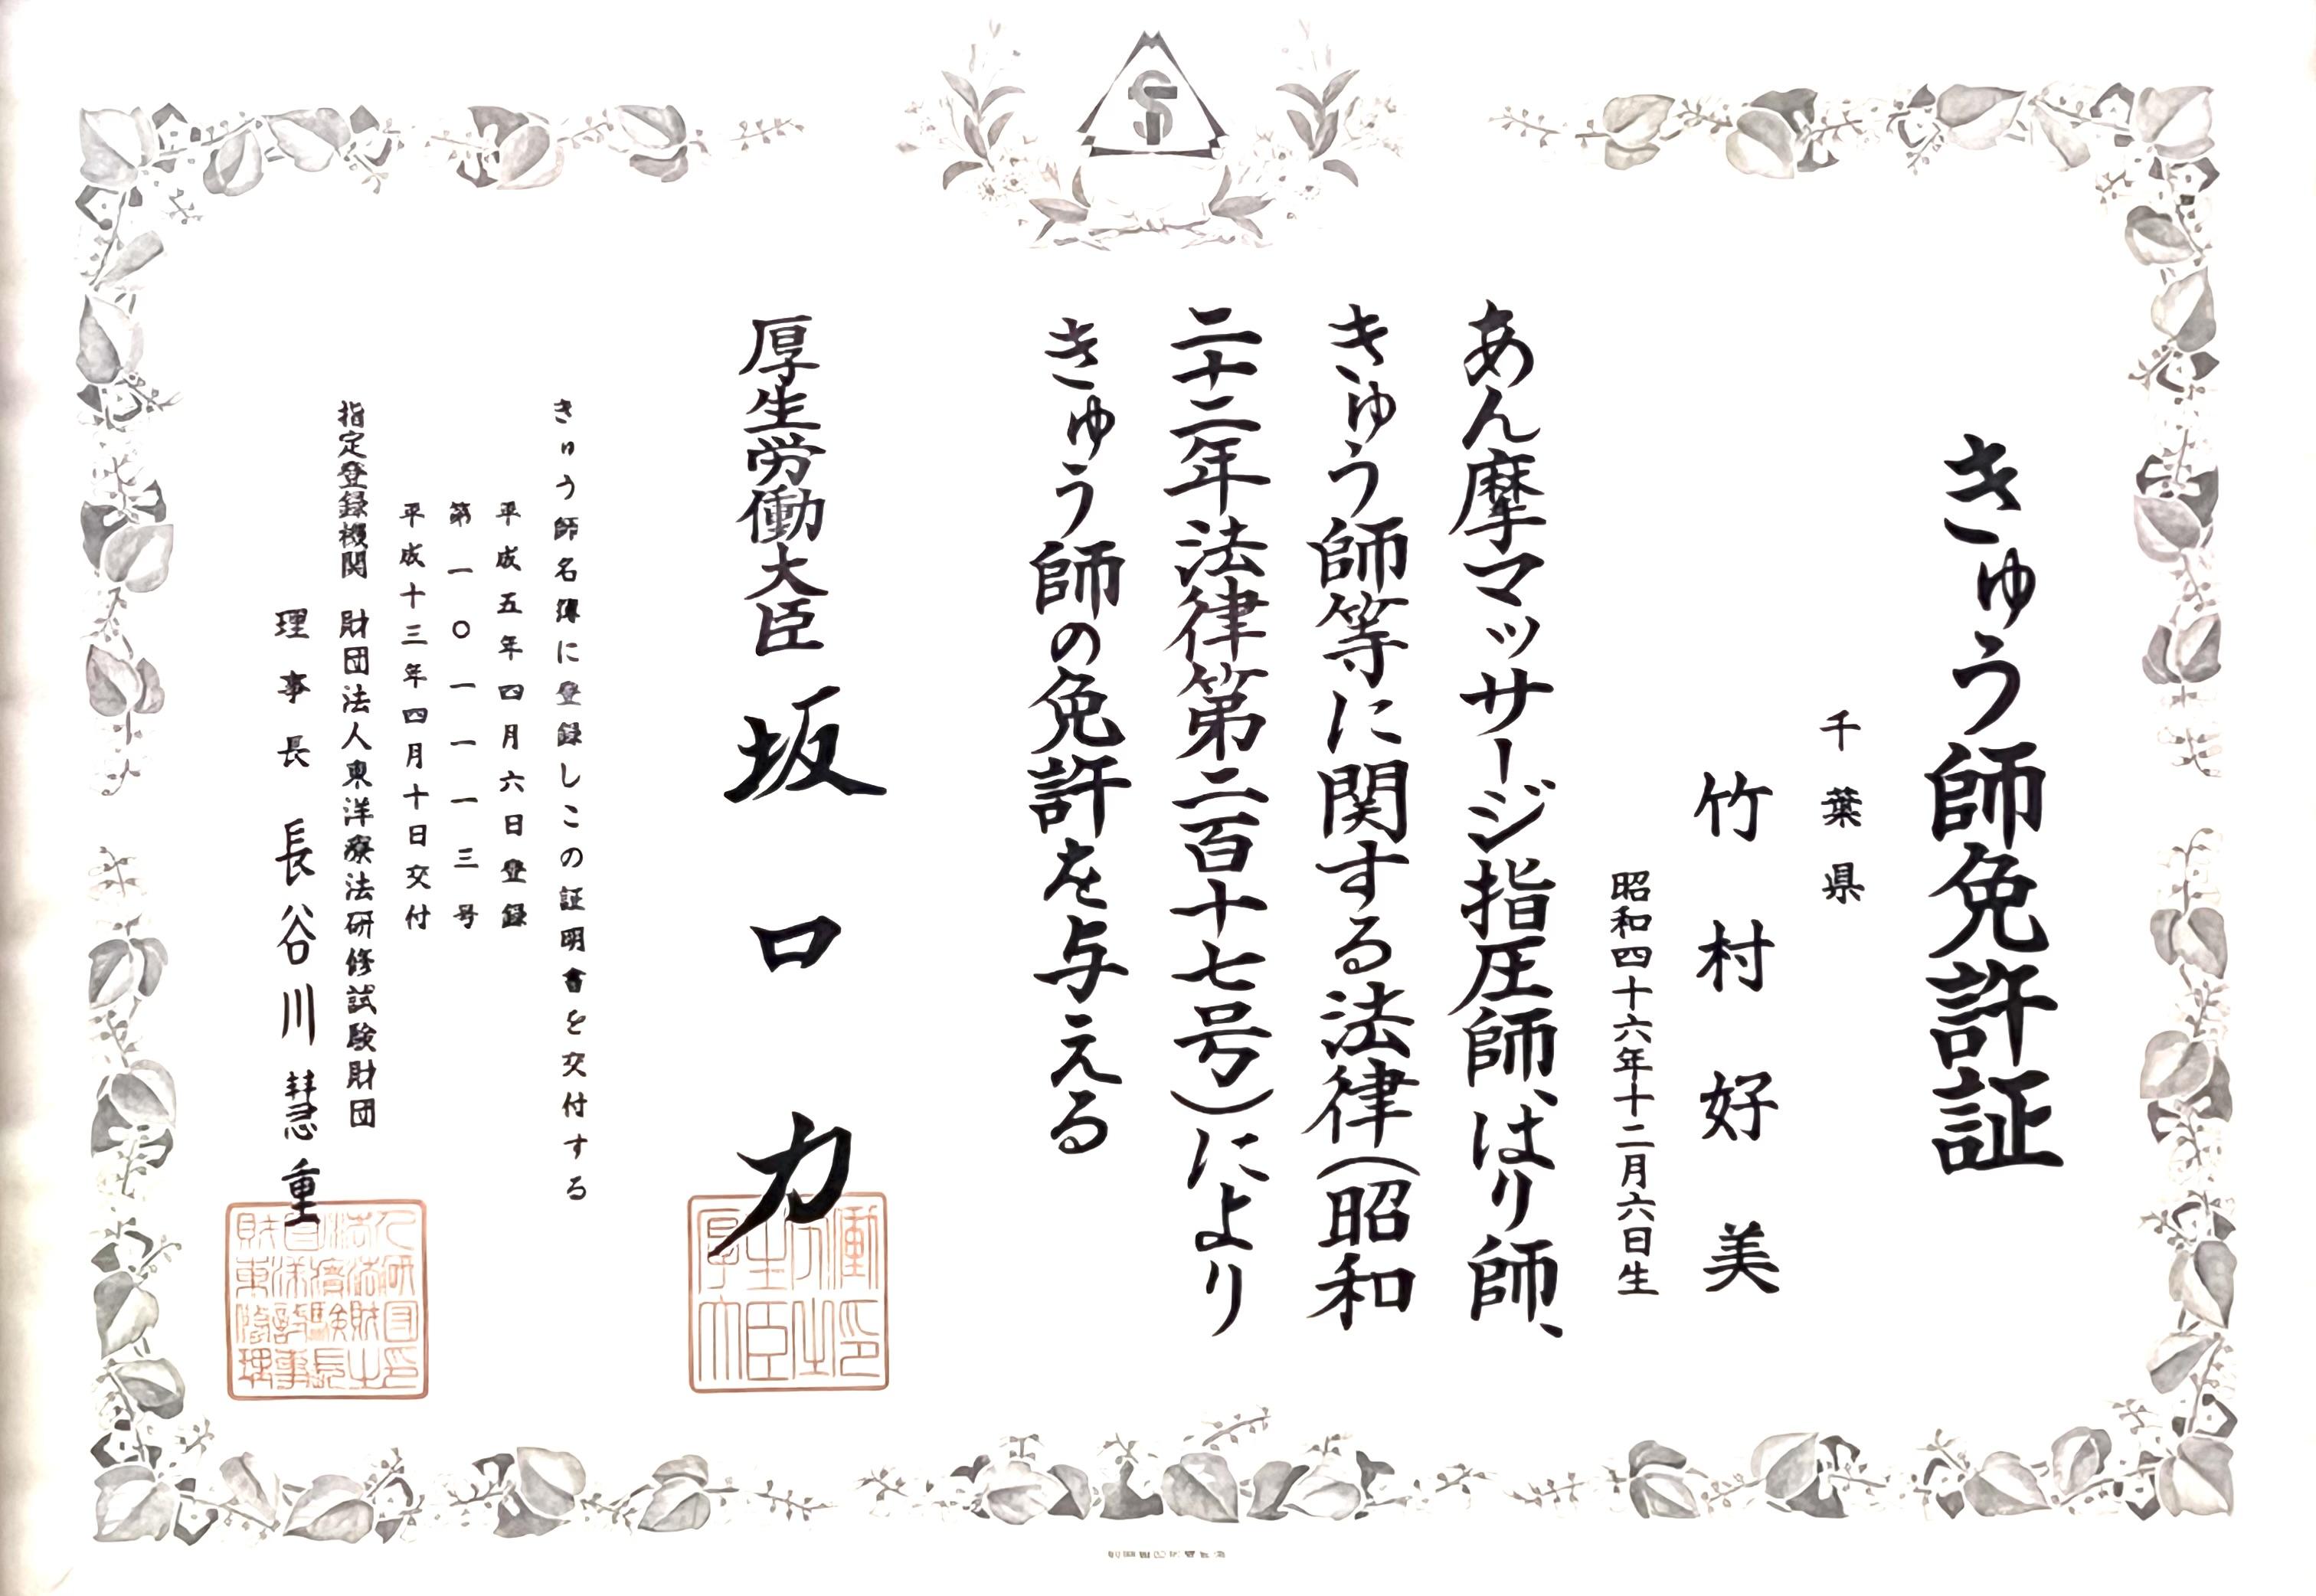 きゅう師免許証
千葉県
竹村好美
昭和四十六年十二月六日生
あん摩マッサージ指圧師、はり師、
きゅう師等に関する法律(昭和
二十二年法律第二百十七号)により
きゅう師の免許を与える
厚生労働大臣 坂口力
きゅう師名簿に登録しこの証明書を交付する
平成五年四月六日登録
第一〇一一一三号
平成十三年四月十日交付
指定登録機関 財団法人東洋療法研修試験財団
理事長 長谷川慧重